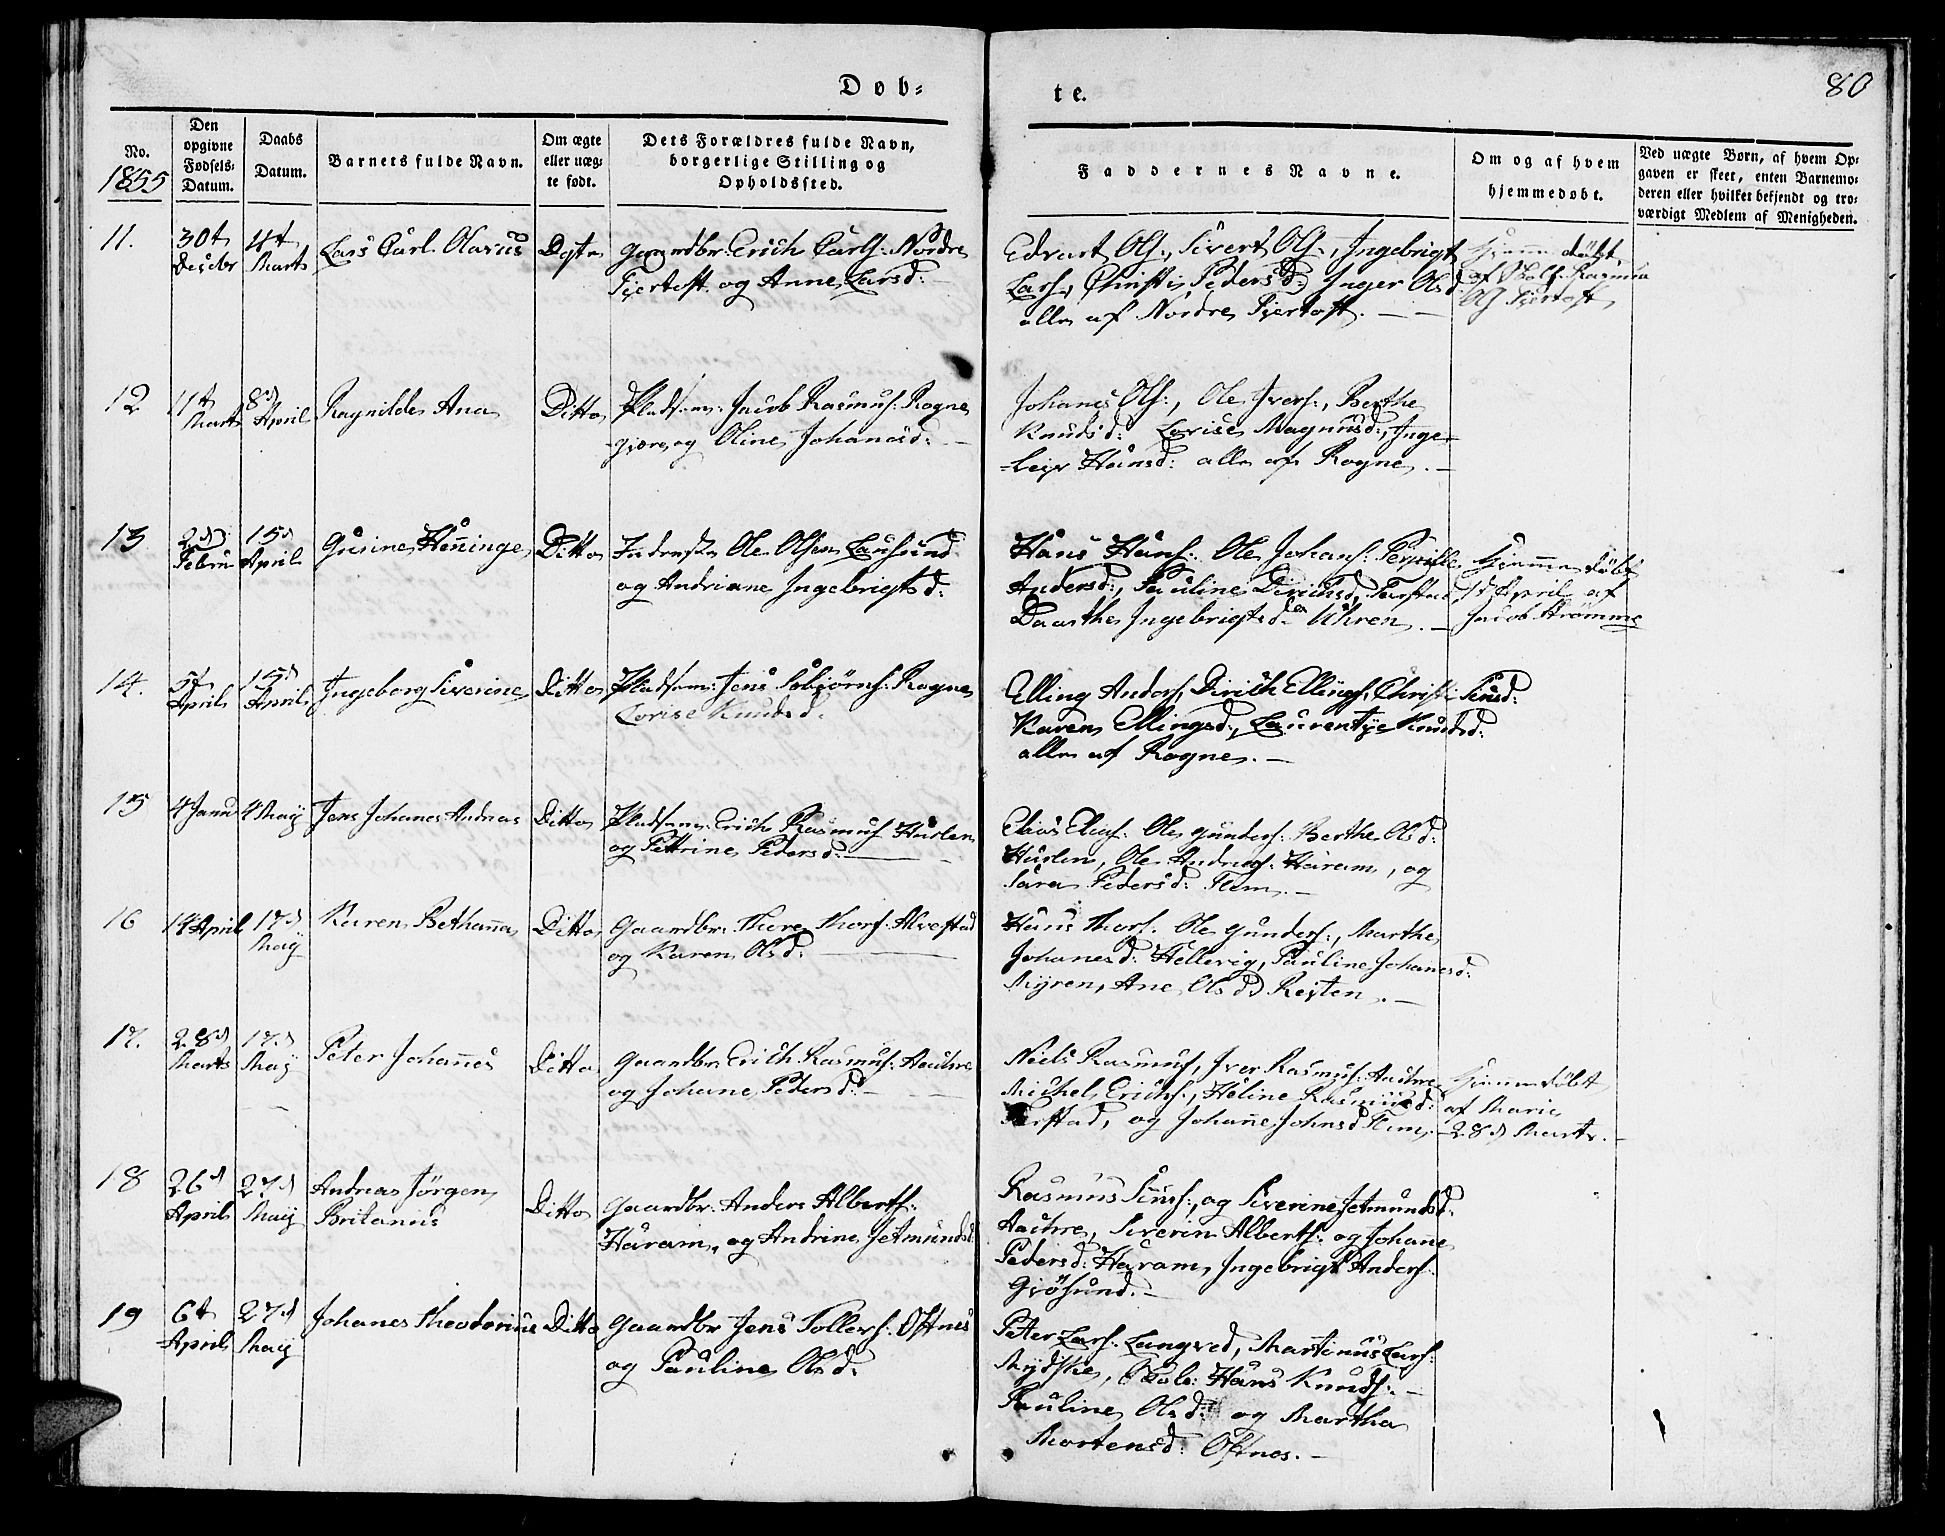 Døb-
te.
80
No.
1855
Den
opgivne
Fødsels-
Datum.
Daabs
Datum.
Barnets fulde Navn.
Om ægte
eller uæg-
te født.
Dets Forældres fulde Navn,
borgerlige Stilling og
Opholdssted.
Faddernes Navne.
Om og af hvem
hjemmedøbt.
Ved uægte Børn, af hvem Op-
gaven er skeet, enten Barnemo-
deren eller hvilket bekjendt og tro-
værdigt Medlem af Menigheden.
11.
30t
Desebr
4t
Marts
Lars Carl Olarius
Gaardbr: Erich Carls: Nordre
og Anne Larsd:
Edvart Ols:, Sivert Ols:, Ingebrigt
Lars:, Pedersd: Inger Olsd:
alle af Nordre
Hjemmedøbt
12
11t
Marts
8d
April
Ragnilde Ana
Ditto
Pladsm: Jacob Rasmus: Rogne
og Oline Johanesd:
Johanes Ols:, Ole Ivers:, Berthe
Knudsd: Lovise Magnusd:, Inge-
Hansd: alle af Rogne.
13
2d
Febru
15d
April
Gusine Henninge
Ditto
Ole Olsen Lausund
og Andriane Ingebrigtsd:
Hans Hans: Ole Johans: Pernille
Andersd:, Pauline
Daarthe Ingebrigtsd: Uhren.
Hjemmedøbt
April af
Jacob Strømme
14.
5t
April
15d
April
Ingeborg Siverine
Ditto
Pladsm: Jens Rogne
Lovise Knudsd.
Elling Anders, Dirich Ellings, Christi
Karen Ellingsd:, Laurentze Knudsd:
alle af Rogne.
15
4 Janu
4 Maÿ
Jens Johanes Andreas
Ditto
Pladsm: Erich Rasmus Hurlen
og Pettrine Pedersd:
Elias Elias: Ole Gunders: Berthe Olsd:
Hurlen, Ole Andreas: Haram, og
Sara Pedersd: Flem.
16
14 April
17d
Maÿ
Karen Bethanna
Ditto
Gaardbr: Thore Thors: Alvestad
og Karen Olsd:
Hans Thors. Ole Gunders:, Marthe
Johanesd: Hellevig, Pauline Johanesd:
Myren, Ane Olsd: Røsten.
17.
28d
Marts
17d
Maÿ
Peter Johannes
Ditto
Gaardbr: Erich Rasmus: Hauhre
og Johane Pedersd:
Niels Rasmus, Iver Rasmus: Hauhre
Michel Erichs:, Heline Rasmusd:
og Johanne Johnsd Flem.
Hjemmedøbt
af Marie
28d Marts.
18
26d
April
27d
Maÿ
Andreas Jørgen
Britanius
Ditto
Gaardbr: Anders Alberts:
Haram, og Andrine Jetmundsd:
Rasmus og Siverine Jetmundsd.
Hauhre, Severin Alberts: og Johane
Pedersd: Haram, Ingebrigt Anders:
Gjøsund.
19
6t
April
27d
Maÿ
Johanes Theodorius
Ditto
Gaardbr Jens Tollers: Oftnes
og Pauline Olsd.
Peter Lars. Longved, Martinus Lars:
Hans Knuds:
Pauline Olsd: og Martha
Mortensd: Oftnes.